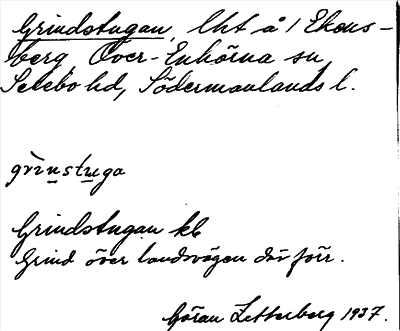 Grindstugan, lht å 1 Ekens-
berg, Över-Enhörna sn,
Selebo hd, Södermanlands l.
grinstuga
Grindstugan kb
Grind över landsvägen där förr.
Göran Zetterberg 1937.